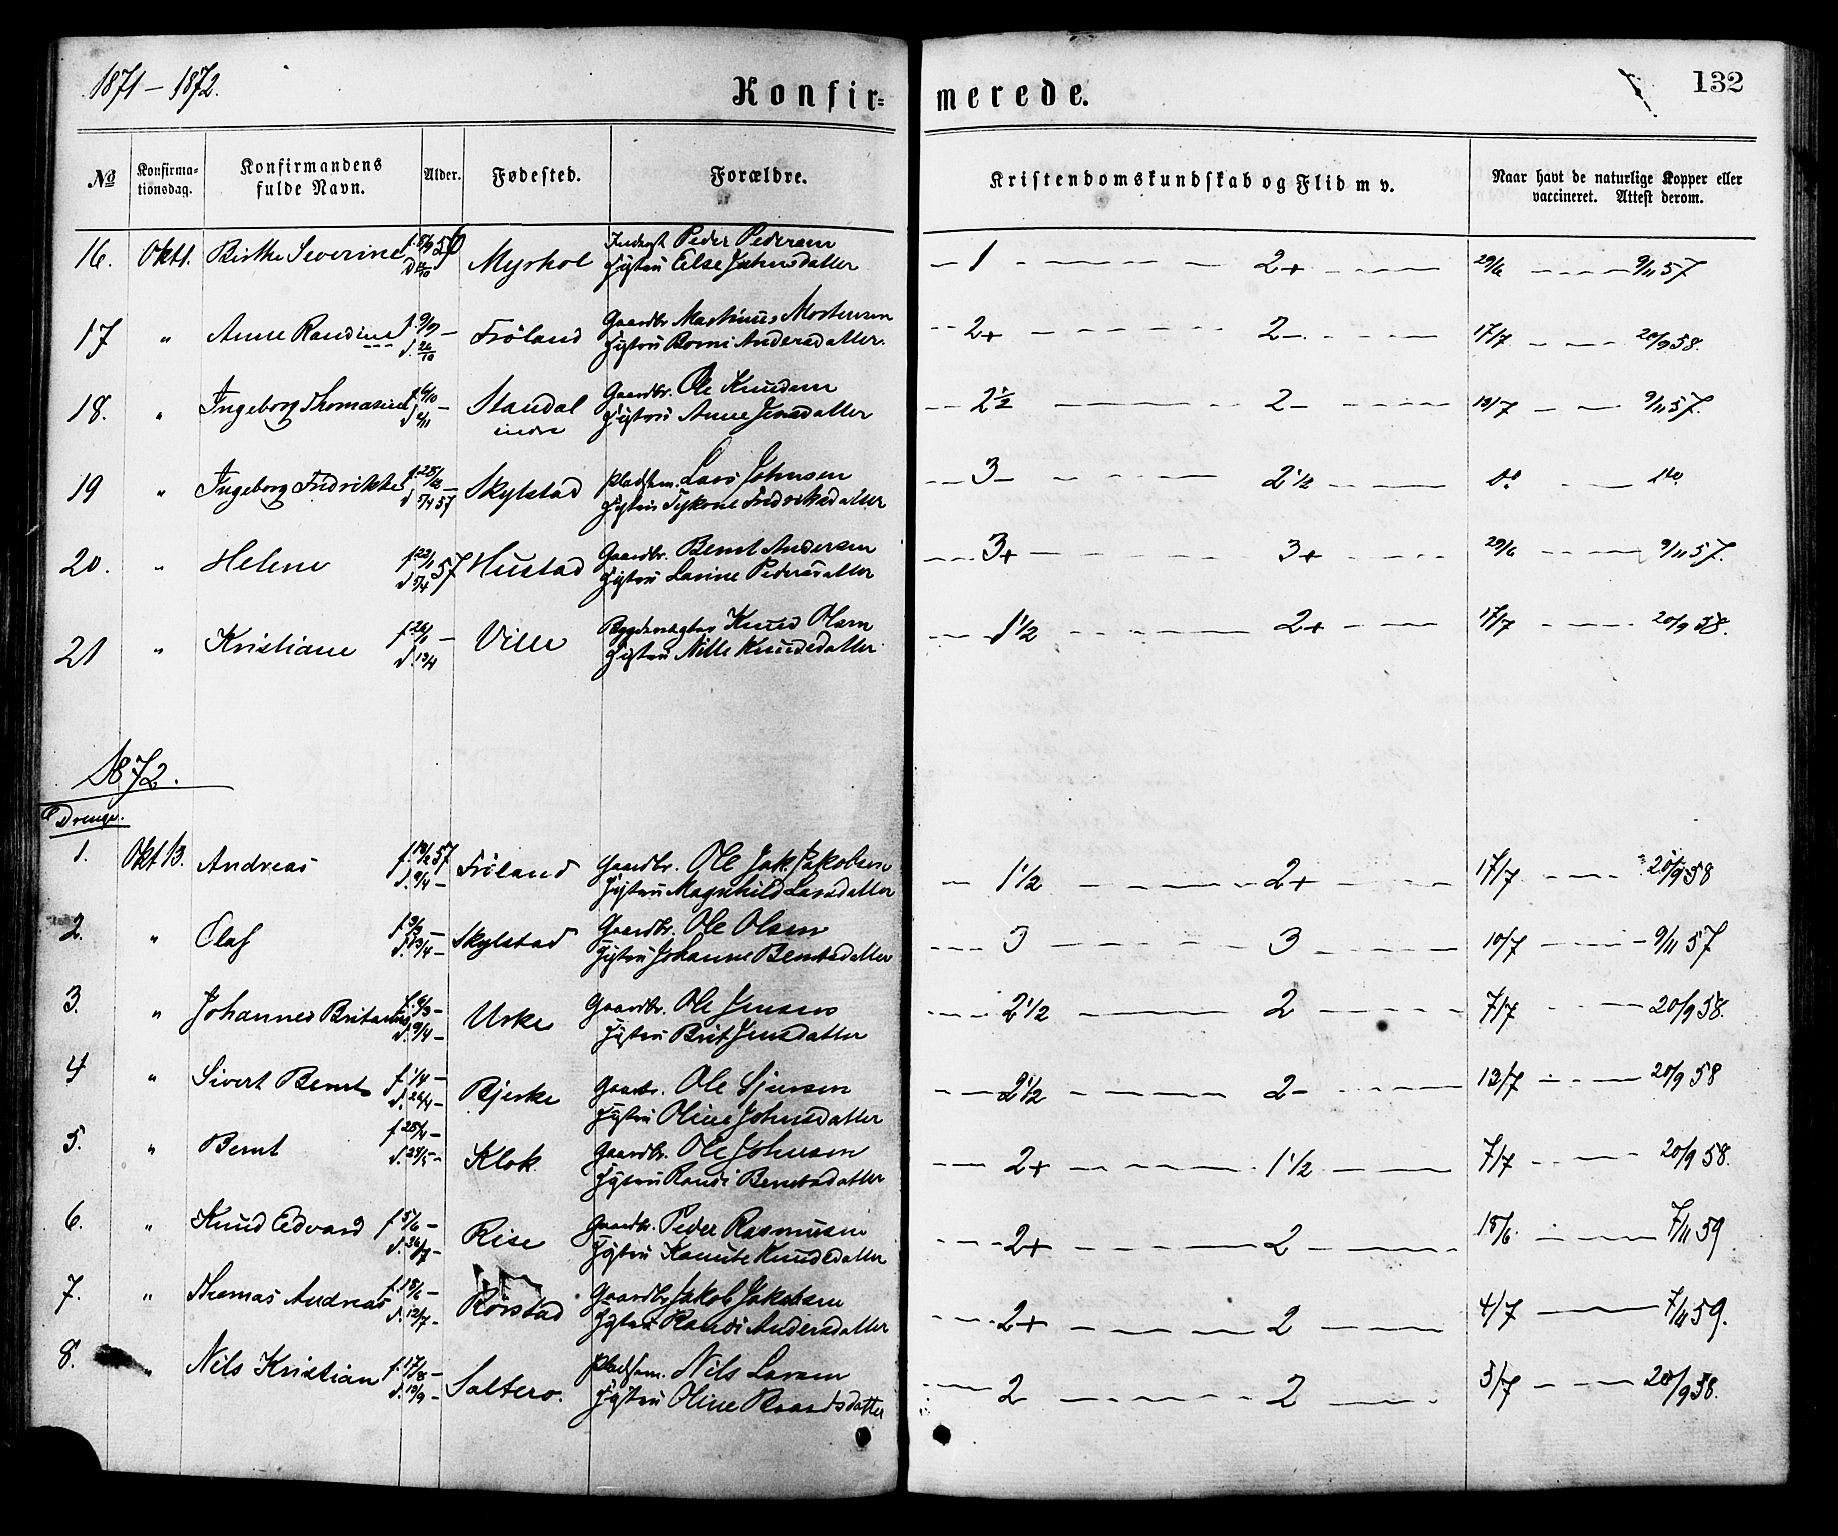 1871 – 1872.
Konfir=
merede.
132
No
Konfirma-
tionsdag.
Konfirmandens
fulde Navn.
Alder.
Fødested.
Forældre.
Kristendomskundskab og Flid m v.
Naar havt de naturlige Kopper eller
vaccineret. Attest derom.
16. Okt 1. Birthe Severine Myrhol Peder Pedersen
Hustru Else Johnsdatter
1 2+ 29/6 9/11 57
17 " Anne Randine f. 9/9 – d. 26/10 Frøland Gaardbr Martinus Mortensen
Hustru Berni Andersdatter.
2+ 2– 17/7 20/9 58.
18. " Ingeborg Thomasine f. 6/10 – Standal indre Gaardbr. Ole Knudsen
Hustru Anne Jensdatter
2½ 2– 13/7 9/11 57.
19 " Ingeborg Fredrikke f. 28/12 – d. 5/4 57 Skylstad Pladsm. Lars Johnsen
Hustru Fredriksdatter
3– 2½ do do
20. " Helene 57 Hustad Gaardbr. Bernt Andersen
Hustru Lavine Pedersdatter
3+ 3+ 29/6 9/11 57.
21 " Kristiane f. 26/1 – d. 13/4 Ville Knud Olsen
Hustru Nille Knudsdatter
1½ 2+ 17/7 20/9 58.
1872.
Drenge.
1. Okt 13. Andreas f. 18/2 57 d. 9/4 – Frøland Gaardbr. Ole Jak. Jakobsen
Hustru Magnhild Larsdatter
1½ 2+ 17/7 20/9 58
2. " Olaf d. 13/4 – Skylstad Gaardbr. Ole Olsen
Hustru Johanne Berntsdatter
3 3 10/7 9/11 57
3. " Johannes f. 8/3 – d. 9/4 – Urke Gaardbr. Ole Jensen
Hustru Brit Jensdatter
2½ 2 7/7 20/9 58.
4 " Sivert Bernt f. 1/4 – d. 26/4 – Bjerke Gaardbr. Ole Sjursen
Hustru Oline Johnsdatter
2½ 2– 13/7 20/9 58
5. " Bernt f. 25/4 – d. 28/5 – Klok Gaardbr. Ole Johnsen
Hustru Randi Berntsdatter
2+ 1½ 7/7 20/9 58.
6. " Knud Edvard f. 5/6 – d. 26/7 – Rise Gaardbr. Peder Rasmusen
Hustru Knudsdatter
2+ 2 15/6. 7/11 59
7. " Thomas Andreas f. 18/6 – d. 12/7 – Rørstad Gaardbr Jakob Jakobsen
Hustru Randi Andersdatter
2+ 2 4/7 7/11 59.
8. " Nils Kristian f. 17/8 – d. 19/9 – Saltero. Pladsm. Nils Larsen
Hustru Oline Baardsdatter
2 2 3/7 20/9 58.